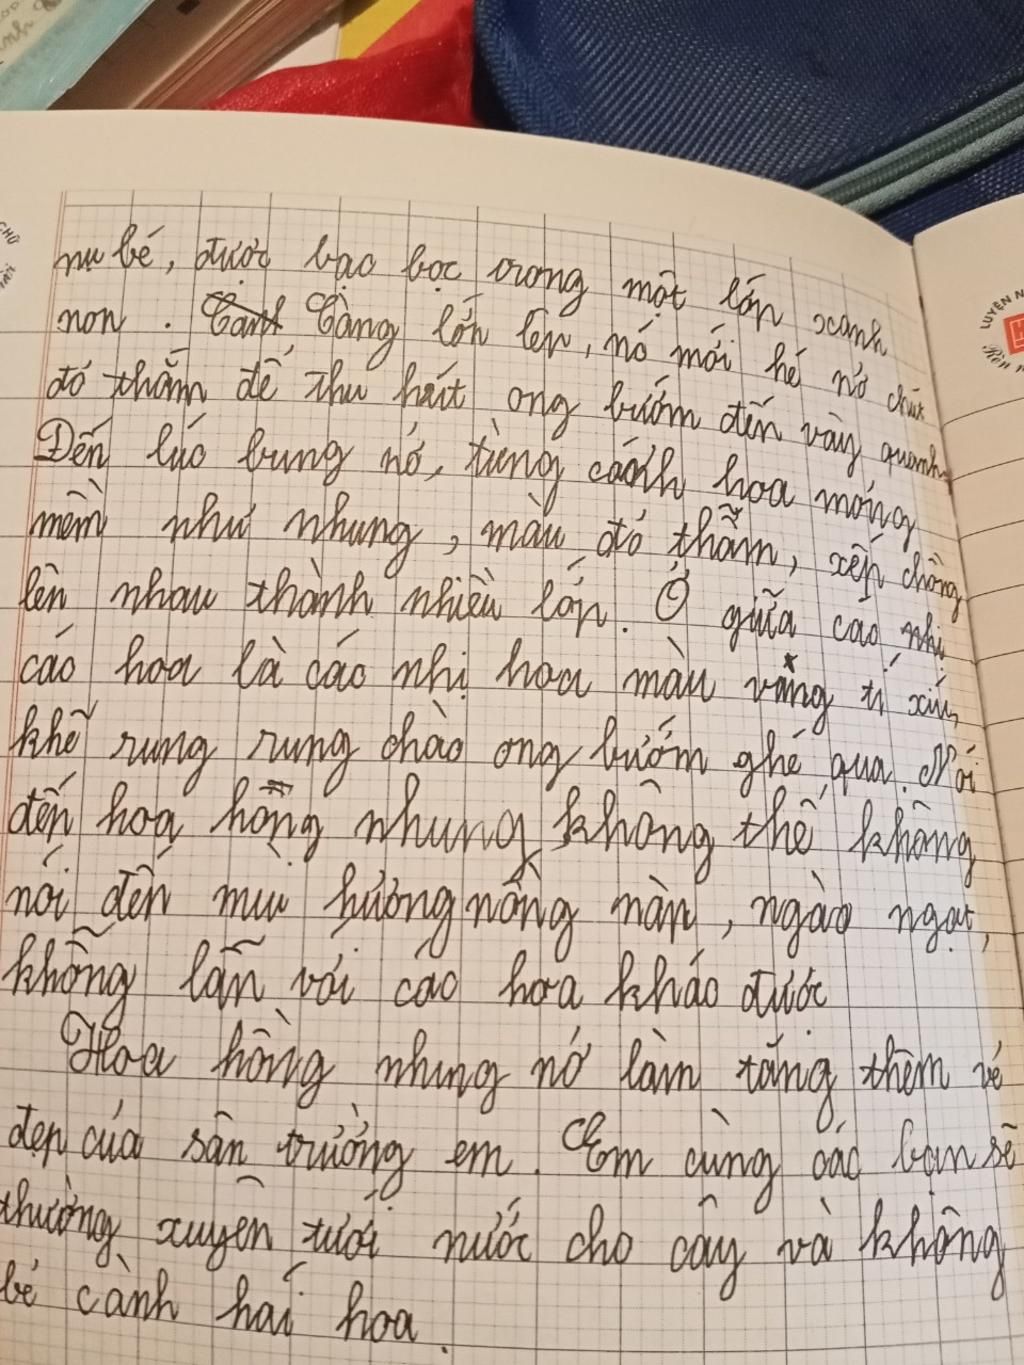 nụ bé, được bao bọc trong một lớp xanh
non. Càng lớn lên, nó mới hé nở chút
đỏ thắm để thu hút ong bướm đến vây quanh
Đến lúc bung nở, từng cánh hoa mỏng
mềm như nhung, màu đỏ thẫm, xếp chồng
lên nhau thành nhiều lớp. Ở giữa các nhị
các hoa là các nhị hoa màu vàng tí xíu,
khẽ rung rung chào ong bướm ghé qua. Nói
đến hoa hồng nhung không thể không
nói đến mùi hương nồng nàn, ngào ngạt,
không lẫn với các hoa khác được
Hoa hồng nhung nó làm tăng thêm vẻ
đẹp của sân trường em. Em cùng các bạn sẽ
thường xuyên tưới nước cho cây và không
bẻ cành hái hoa.
CHỮ
LUYỆN